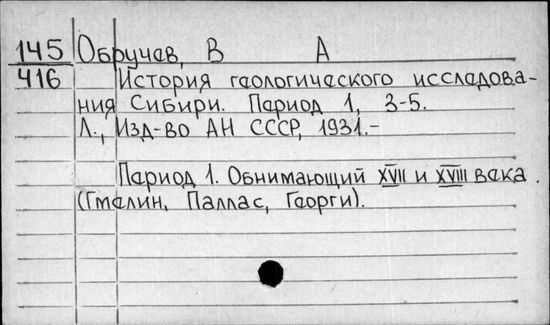 145 Обручев, В А
416 История геологического исследова-
ния Сибири. Период 1, 3-5.
Л., Изд-во АН СССР, 1931.-
Период 1. Обнимающий XVII и XVIII века.
(Гмелин, Паллас, Георги).